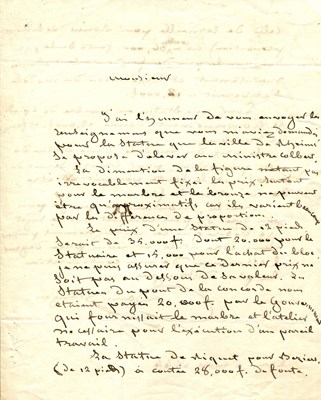 Monsieur
J'ai l'honneur de vous envoyer les
renseignemens que vous m'aviez demandés
pour la Statue que la ville de Rheims
se propose d'elever au ministre Colbert.
La dimention de la figure n'étant pas
irrevocablement fixée les prix, Surtout
pour le marbre et le bronze ne peuvent
être qu'approximatifs car ils varient beaucoup
par les différences de proportion.
Le prix d'une Statue de 12 pieds
serait de 35.000f. dont 20,000 pour le
Statuaire et 15,000 pour l'achat du bloc
je ne puis assurer que ce dernier prix ne
soit pas au dessous de sa valeur. Les
Statues du pont de la concorde nous
etaient payées 20,000f. par le Gouvernement
qui fournissait le marbre et l'atelier
nécessaire pour l'exécution d'un pareil
travail.
La Statue de Riquet pour Beziers
(de 12 pieds) à coutée 28,000f. de fonte.